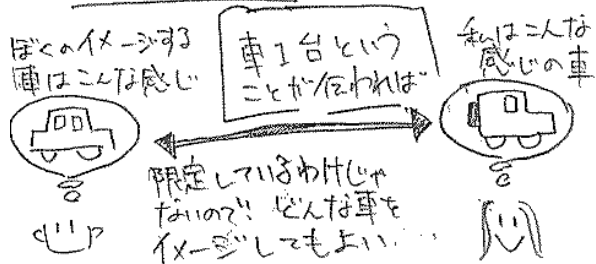 ぼくのイメージする
車はこんな感じ
車1台という
ことが伝われば
私はこんな
感じの車
限定しているわけじゃ
ないので! どんな車を
イメージしてもよい…